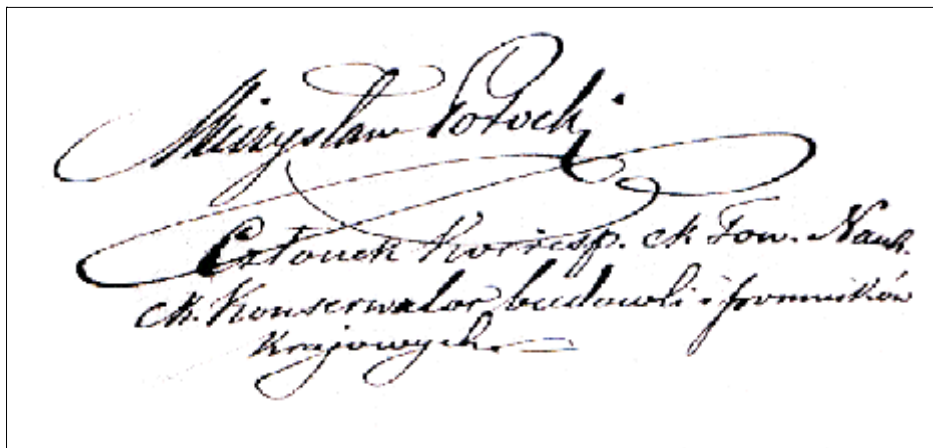 Mieczysław Potocki
Członek Korresp. ck Tow. Nauk.
ck. Konserwator budowli i pomników
Krajowych.